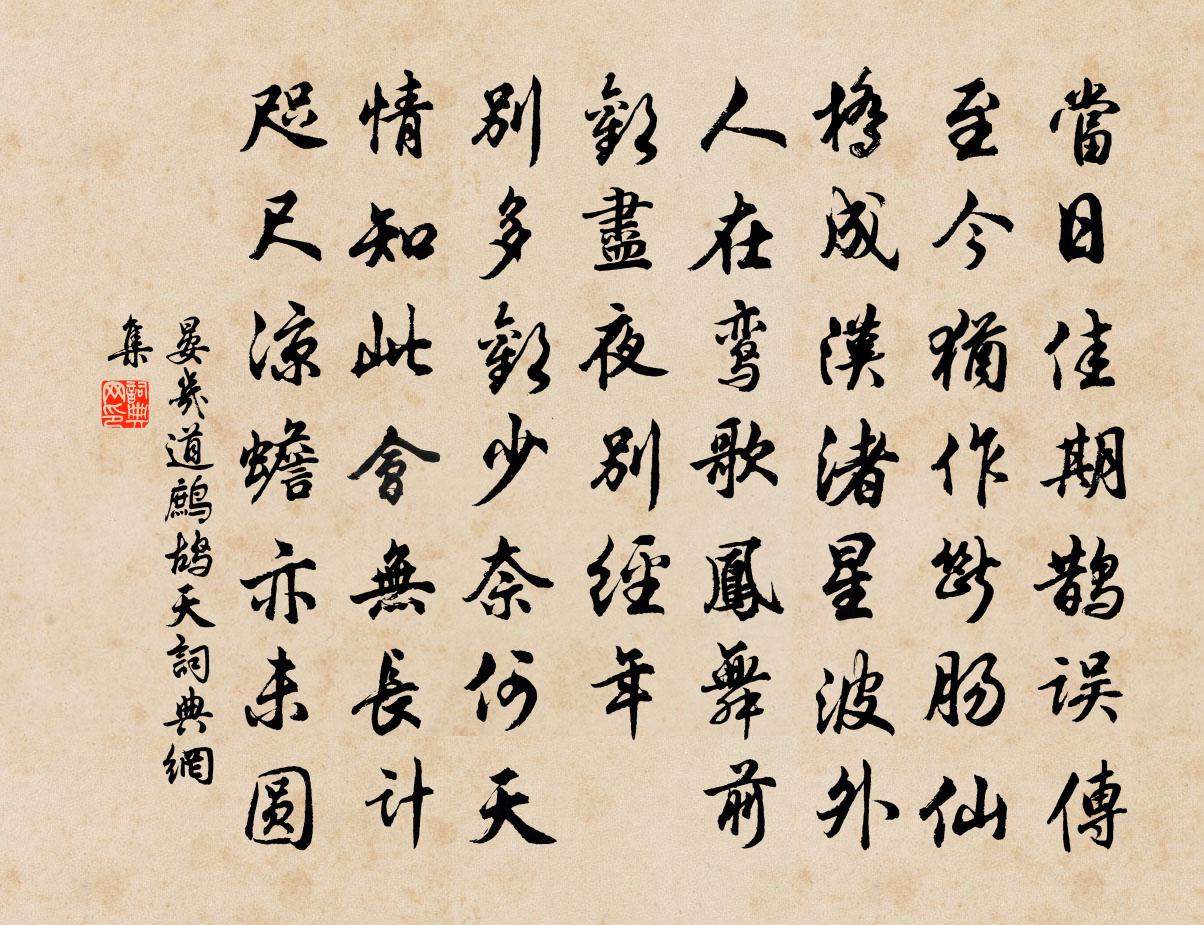 當日佳期鵲误傳
至今猶作斷肠仙
橋成漢渚星波外
人在鸾歌鳳舞前
歡盡夜别經年
别多歡少奈何天
情知此會無長计
咫尺凉蟾亦未圆
晏幾道鹧鸪天詞典網
集
詞典
网印